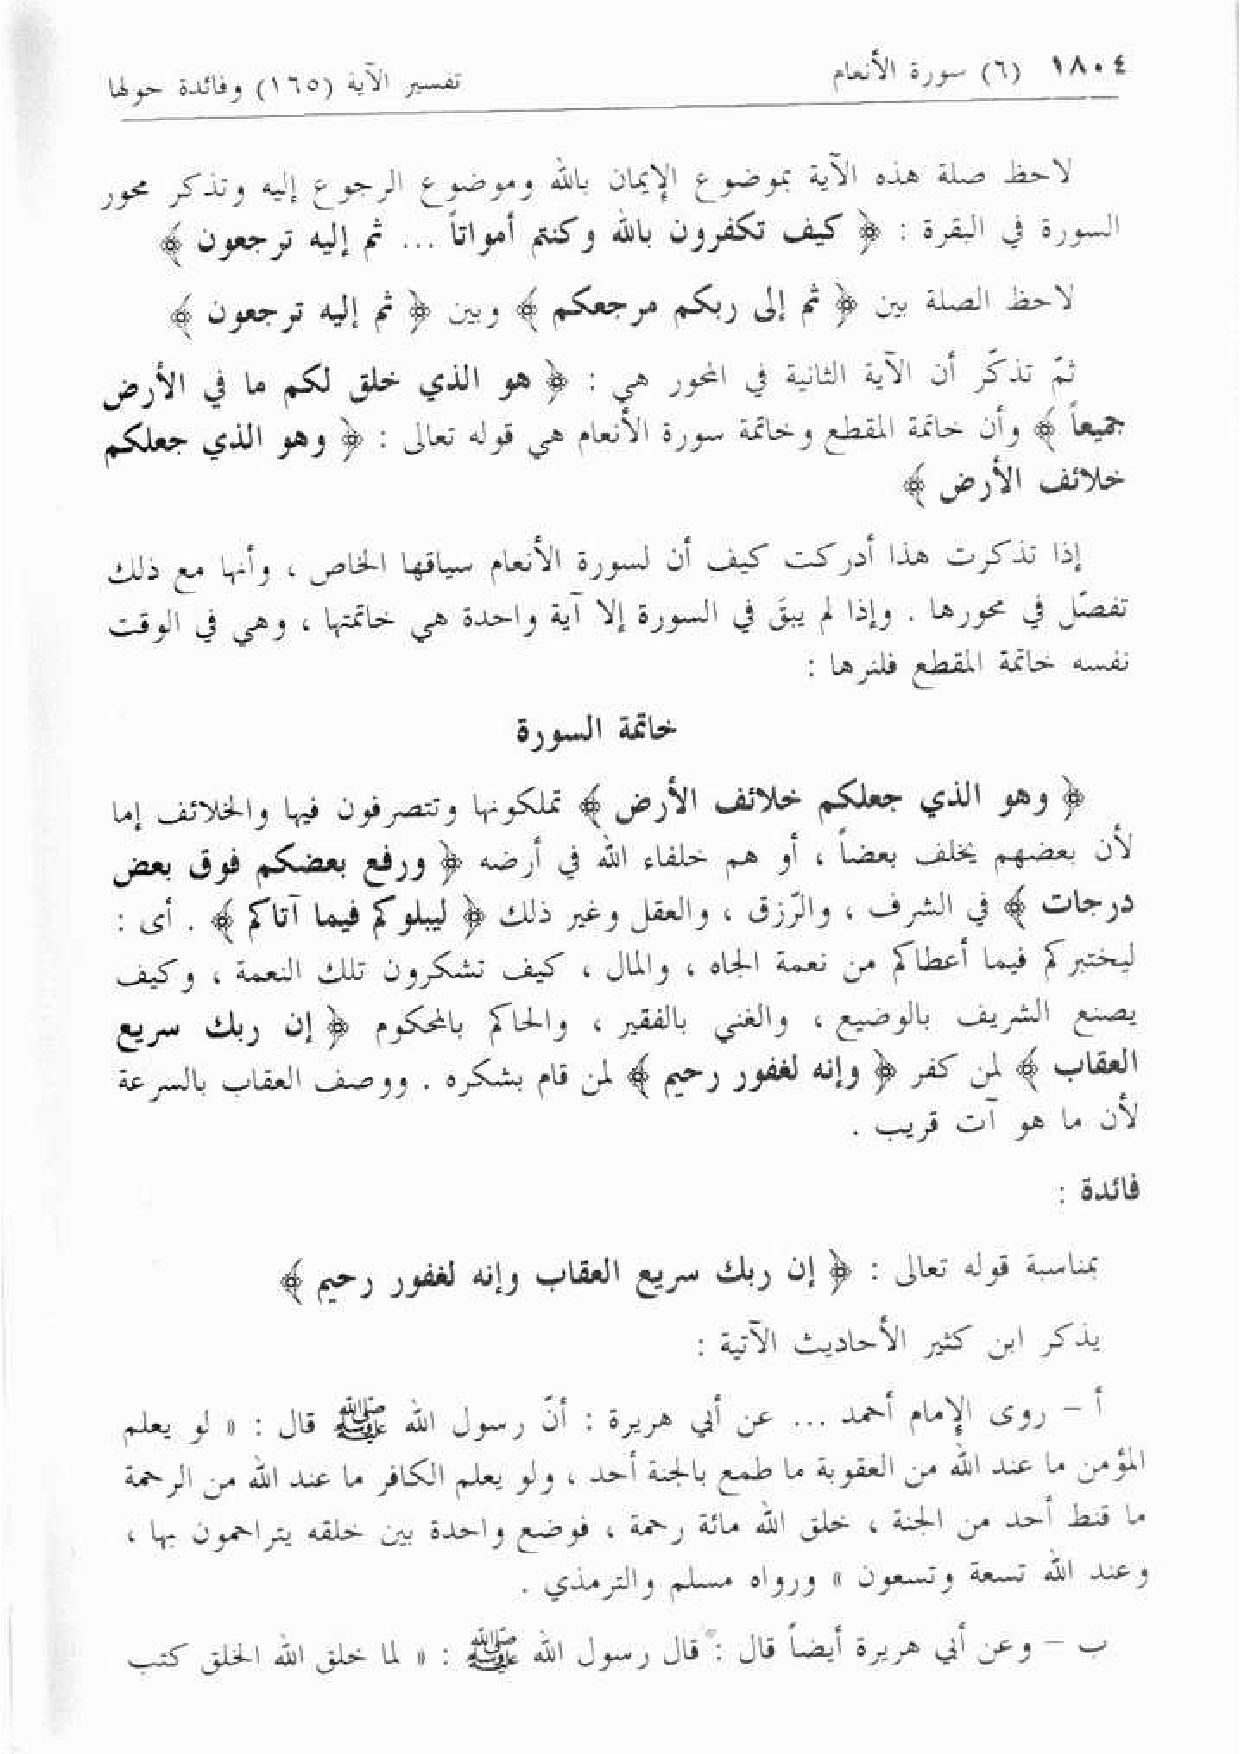 ١٨٠٤ (٦) سورة الأنعام تفسير الآية (١٦٥) وفائدة حولها
لاحظ صلة هذه الآية بموضوع الإيمان بالله وموضوع الرجوع إليه وتذكر محور
السورة في البقرة : ﴿ كيف تكفرون بالله وكنتم أمواتاً ... ثم إليه ترجعون ﴾
لاحظ الصلة بين ﴿ ثم إلى ربكم مرجعكم ﴾ وبين ﴿ ثم إليه ترجعون ﴾
ثمّ تذكّر أن الآية الثانية في المحور هي : ﴿ هو الذي خلق لكم ما في الأرض
جميعاً ﴾ وأن خاتمة المقطع وخاتمة سورة الأنعام هي قوله تعالى : ﴿ وهو الذي جعلكم
خلائف الأرض ﴾
إذا تذكرت هذا أدركت كيف أن لسورة الأنعام سياقها الخاص ، وأنها مع ذلك
تفصّل في محورها . وإذا لم يبقَ في السورة إلا آية واحدة هي خاتمتها ، وهي في الوقت
نفسه خاتمة المقطع فلنرها :
خاتمة السورة
﴿ وهو الذي جعلكم خلائف الأرض ﴾ تملكونها وتتصرفون فيها والخلائف إما
لأن بعضهم يخلف بعضاً ، أو هم خلفاء الله في أرضه ﴿ ورفع بعضكم فوق بعض
درجات ﴾ في الشرف ، والرّزق ، والعقل وغير ذلك ﴿ ليبلوكم فيما آتاكم ﴾ . أى :
ليختبركم فيما أعطاكم من نعمة الجاه ، والمال ، كيف تشكرون تلك النعمة ، وكيف
يصنع الشريف بالوضيع ، والغني بالفقير ، والحاكم بالمحكوم ﴿ إن ربك سريع
العقاب ﴾ لمن كفر ﴿ وإنه لغفور رحيم ﴾ لمن قام بشكره . ووصف العقاب بالسرعة
لأن ما هو آت قريب .
فائدة :
بمناسبة قوله تعالى : ﴿ إن ربك سريع العقاب وإنه لغفور رحيم ﴾
يذكر ابن كثير الأحاديث الآتية :
أ – روى الإمام أحمد ... عن أبي هريرة : أنّ رسول الله ﷺ قال : « لو يعلم
المؤمن ما عند الله من العقوبة ما طمع بالجنة أحد ، ولو يعلم الكافر ما عند الله من الرحمة
ما قنط أحد من الجنة ، خلق الله مائة رحمة ، فوضع واحدة بين خلقه يتراحمون بها ،
وعند الله تسعة وتسعون » ورواه مسلم والترمذي .
ب – وعن أبي هريرة أيضاً قال : قال رسول الله ﷺ : « لما خلق الله الخلق كتب